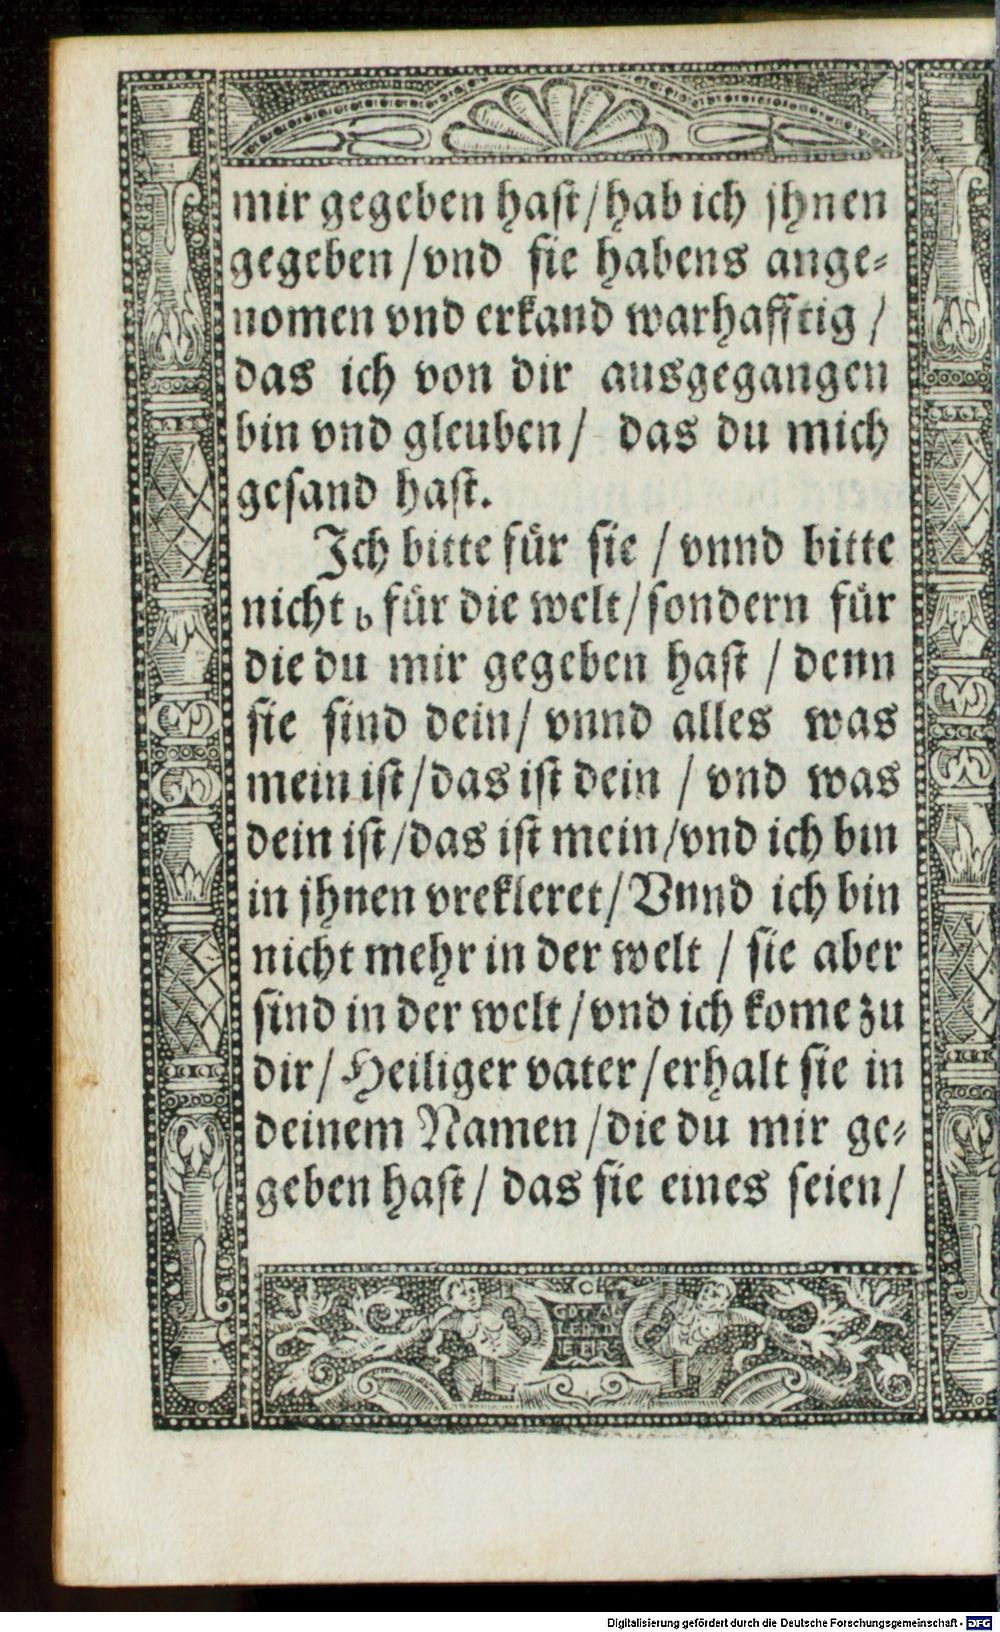 mir gegeben haſt/hab ich jhnen
gegeben/vnd ſie habens ange⸗
nomen vnd erkand warhafftig/
das ich von dir ausgegangen
bin vnd gleuben/ das du mich
geſand haſt.
Ich bitte für ſie / vnnd bitte
nicht für die welt/ſondern für
die du mir gegeben haſt / denn
ſie ſind dein/ vnnd alles was
mein iſt/das iſt dein / vnd was
dein iſt/das iſt mein/vnd ich bin
in jhnen vrekleret/Vnnd ich bin
nicht mehr in der welt / ſie aber
ſind in der welt/vnd ich kome zu
dir/Heiliger vater/erhalt ſie in
deinem Namen/die du mir ge⸗
geben haſt/ das ſie eines ſeien/
GOT AL
LEIN D
EER
Digitalisierung gefördert durch die Deutsche Forschungsgemeinschaft - DFG